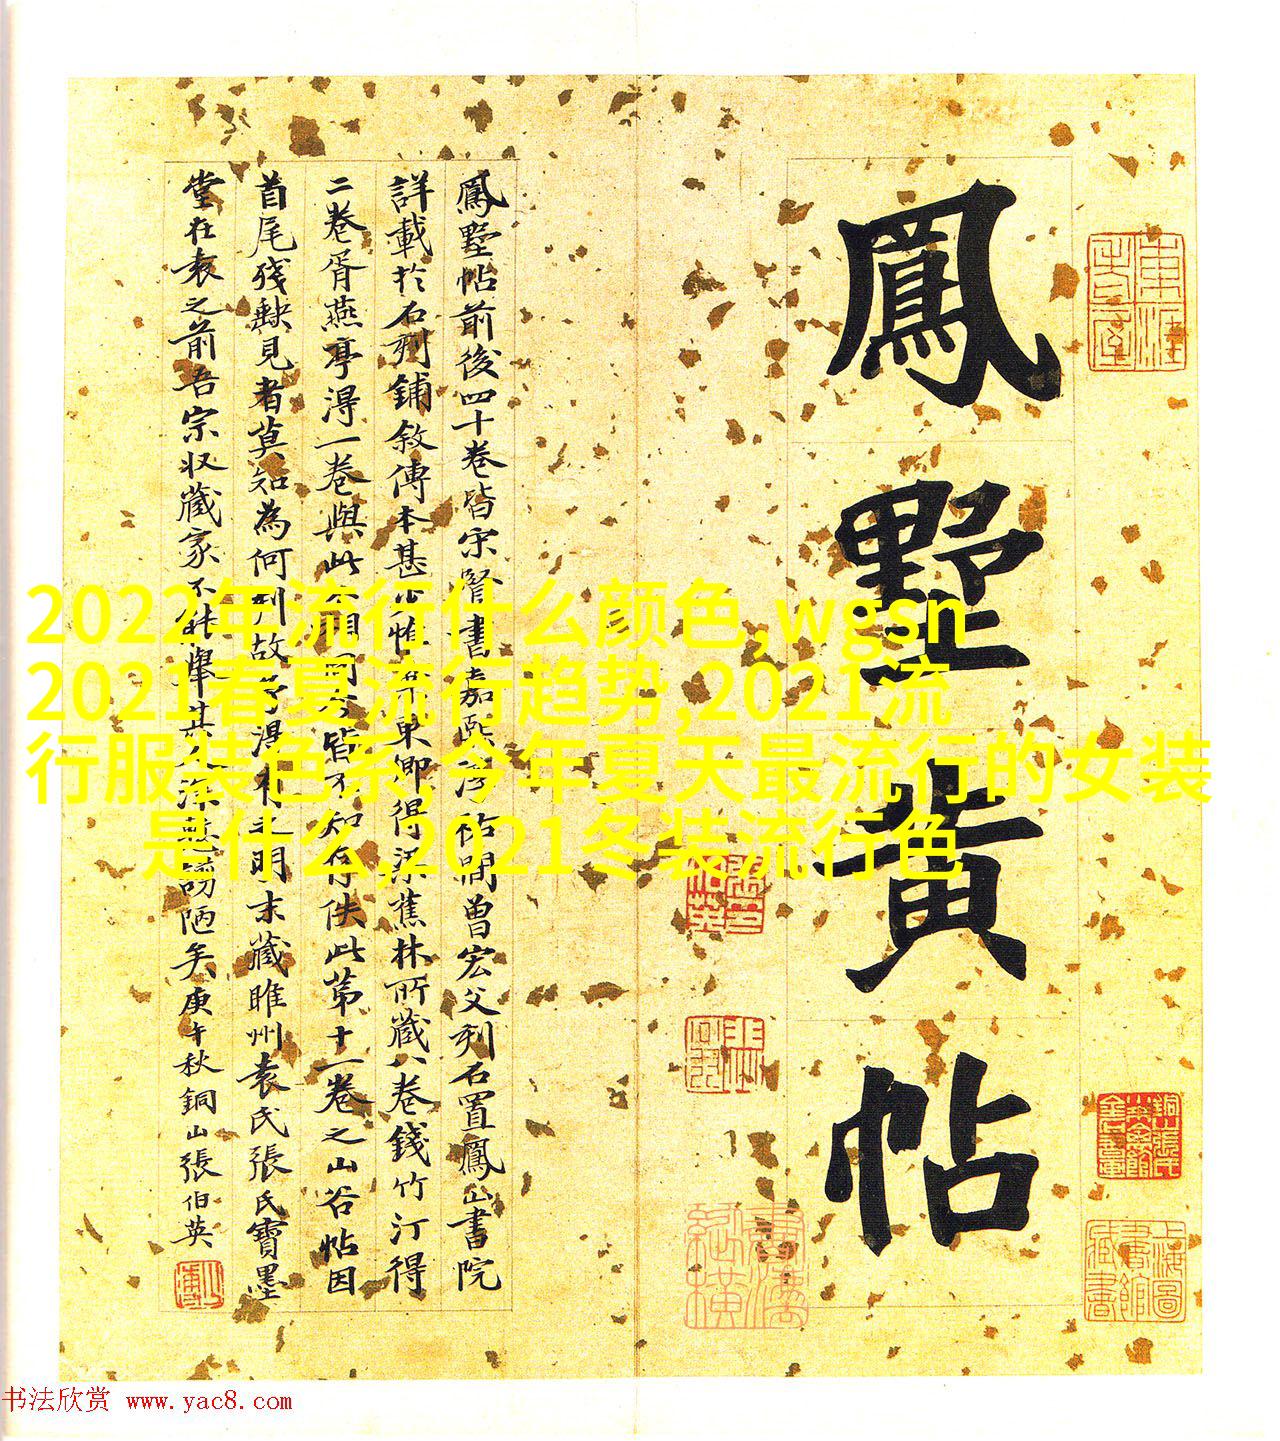 鳳墅黃帖
鳳墅帖前後四十卷皆宋賢書嘉熙淳祐間曾宏父刻石置鳳山書院
詳載於石刻鋪敘傳本甚少惟 東卿得梁蕉林所藏八卷錢竹汀得
二卷胥燕亭得一卷與此 皆不知存佚此第十一卷之山谷帖因
首尾殘缺見者莫知為何刻故 得 之明末藏睢州袁氏張氏寶墨
堂在袁之前吾宗收藏家不能舉其 謭陋矣庚午秋銅山張伯英
2022年流行什么颜色,wgsn
2021春夏流行趋势,2021流
行服装色系,今年夏天最流行的女装
是什么,2021冬装流行色
上海圖
書館
藏書
书法欣赏 www.yac8.com